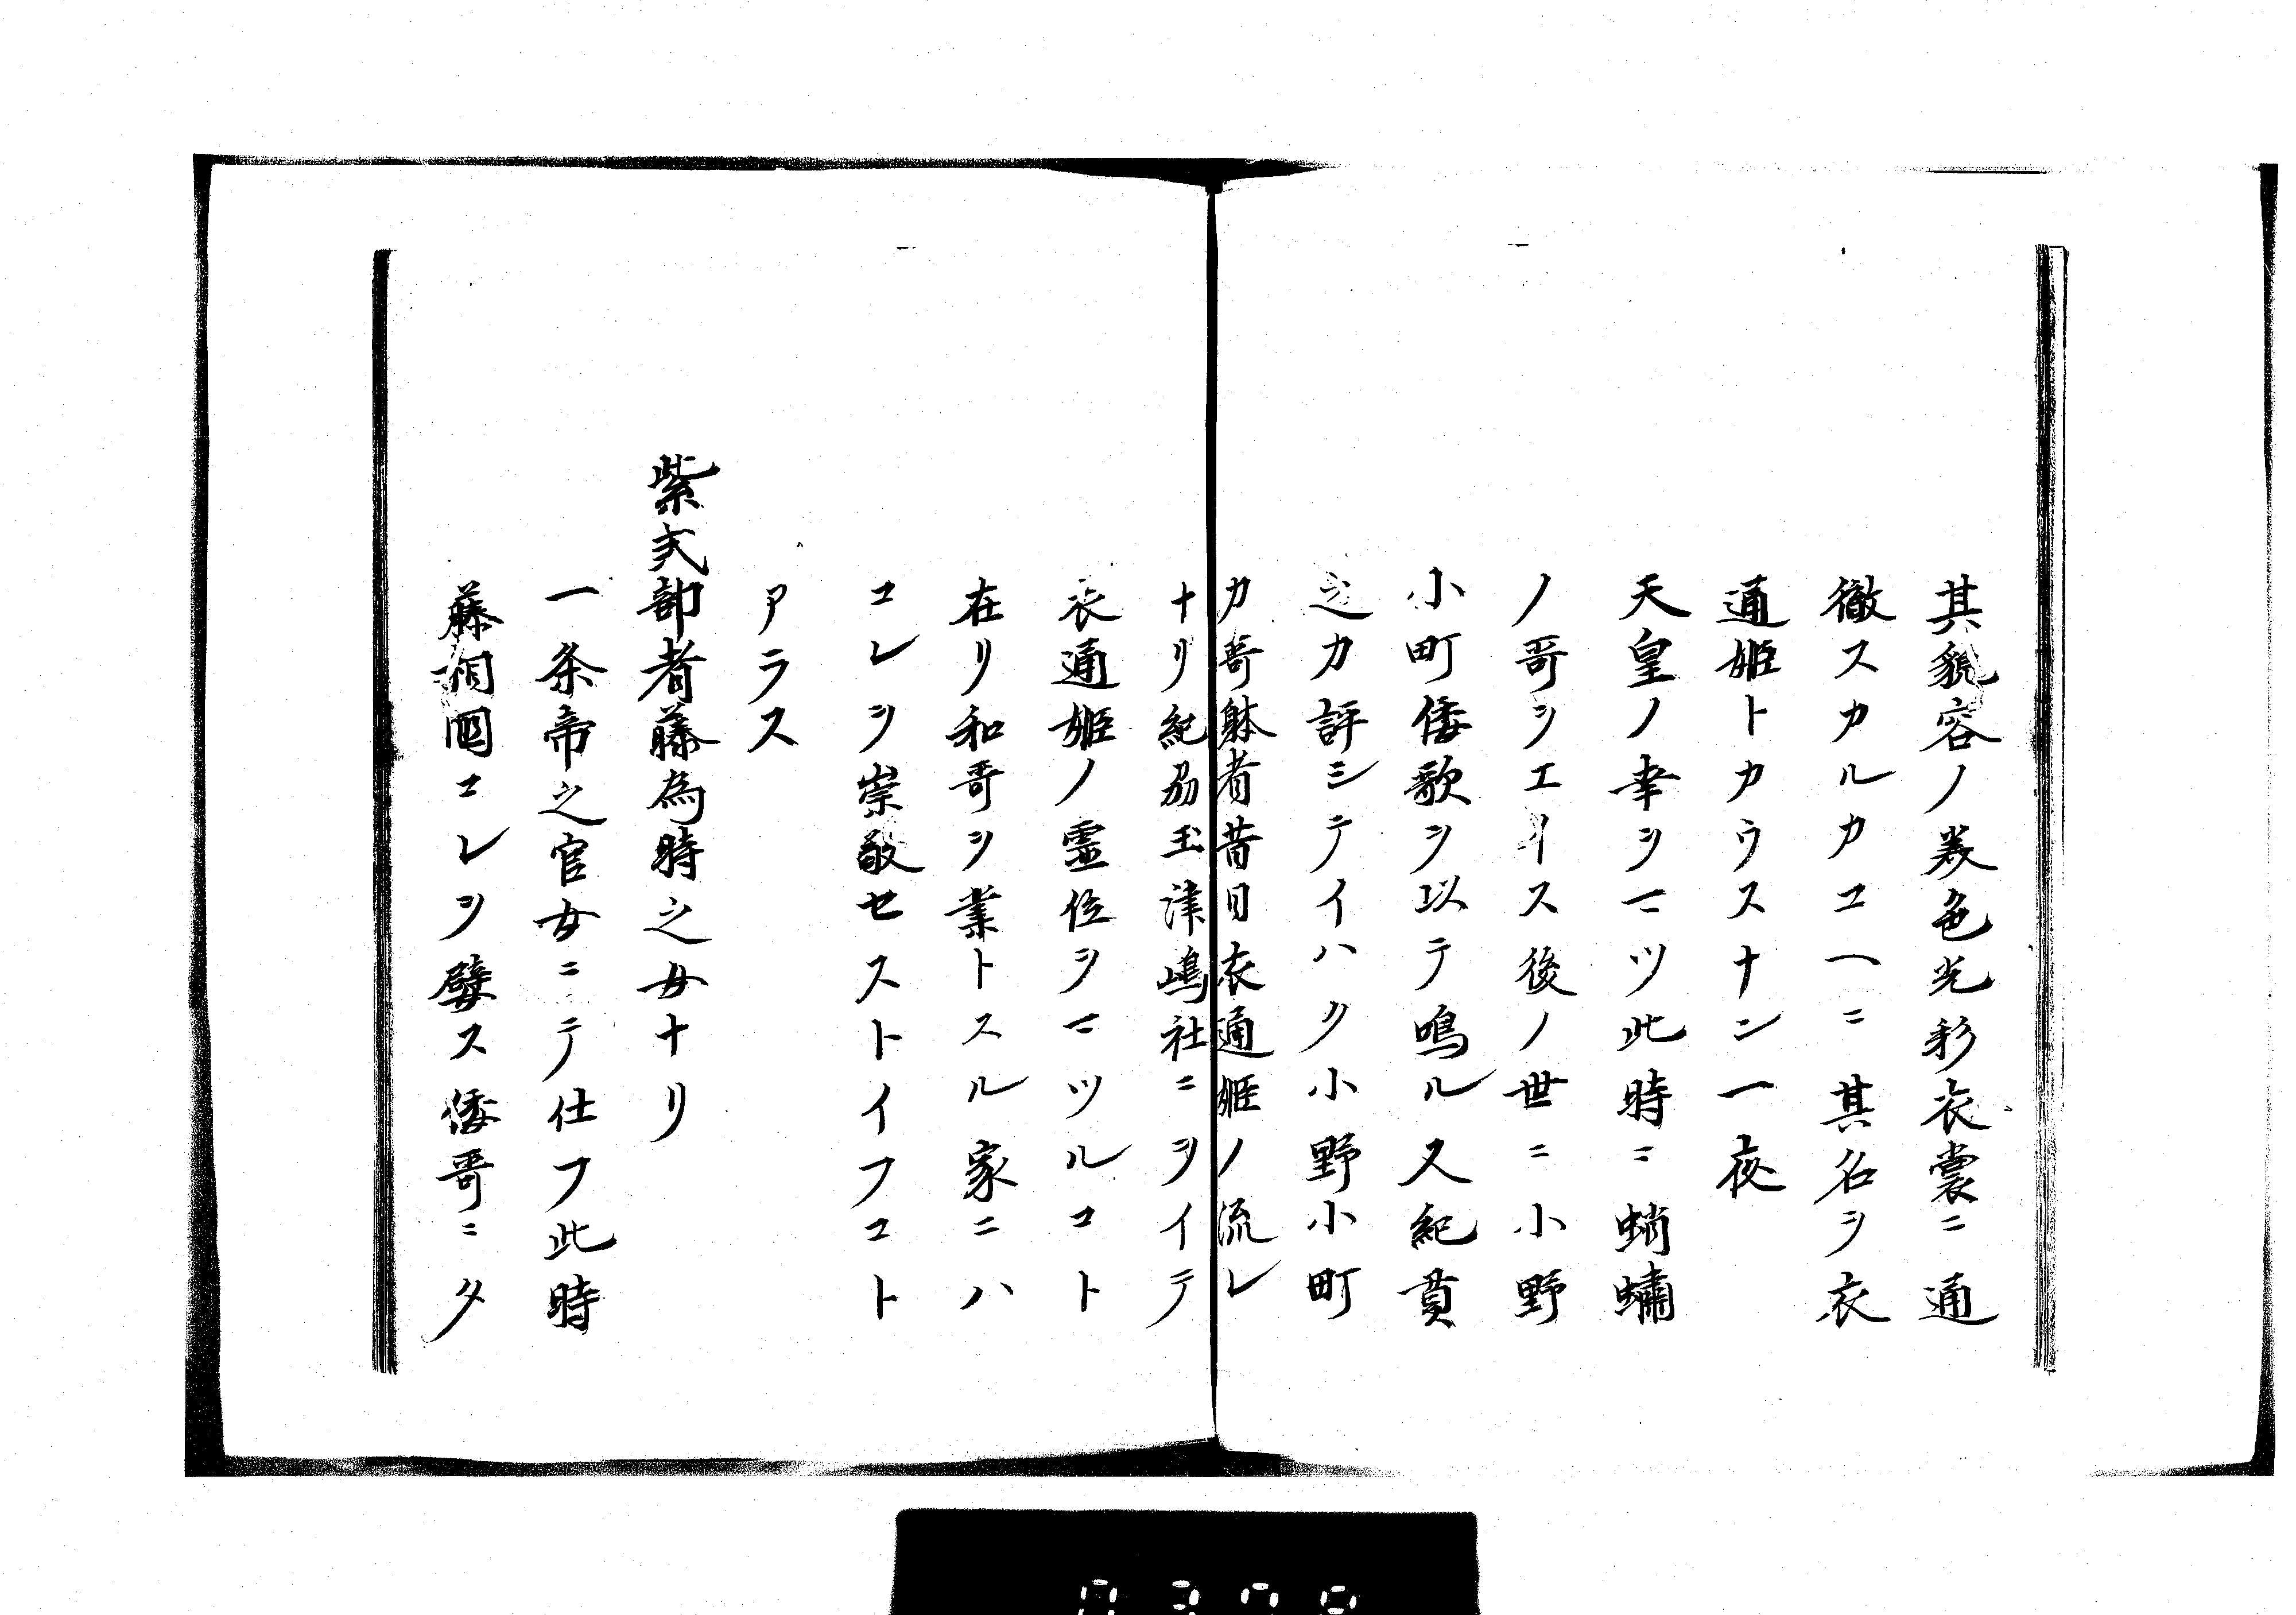 其貌容ノ美色光彩衣裳ニ通
徹スカルカユヘニ其名ヲ衣
通姫トカウスナン一夜
天皇ノ幸ヲマツ此時ニ蛸蠨
ノ哥ヲエイス後ノ世ニ小野
小町倭歌ヲ以テ鳴ル又紀貫
之カ評シテイハク小野小町
カ哥躰者昔日衣通姫ノ流レ
ナリ紀刕玉津嶋社ニヲイテ
衣通姫ノ霊位ヲマツルコト
在リ和哥ヲ業トスル家ニハ
コレヲ崇敬セストイフコト
アラス
紫式部者藤為時之女ナリ
一条帝之官女ニテ仕フ此時
藤相國コレヲ嬖ス倭哥ニタ